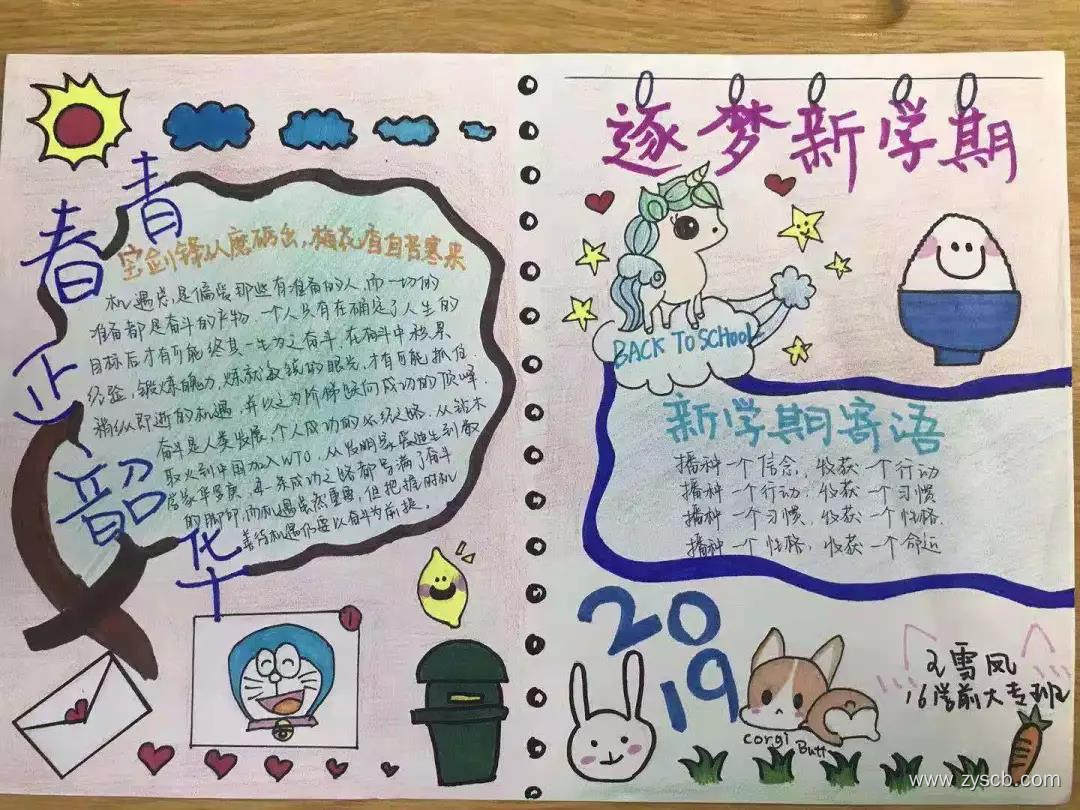 青春正韶华
宝剑锋从磨砺出，梅花香自苦寒来
机遇总是偏爱那些有准备的人，而一切的
准备都是奋斗的产物，一个人只有在确定了人生的
目标后才有可能终其一生为之奋斗，在奋斗中积累
经验，锻炼能力，炼就敏锐的眼光，才有可能抓住
稍纵即逝的机遇，并以之为阶梯迈向成功的顶峰．
奋斗是人类发展，个人成功的必经之路．从钻木
取火到中国加入WTO，从发明家爱迪生到数
学家华罗庚，每一条成功之路都写满了奋斗
的脚印，而机遇虽然重要，但把握时机
善待机遇仍要以奋斗为前提。
1
逐梦新学期
BACK TO SCHOOL
新学期寄语
播种一个信念，收获一个行动
播种一个行动，收获一个习惯
播种一个习惯，收获一个性格．
播种一个性格，收获一个命运
2019
corgi Butt
王雪凤
16学前大专班2
www.zyscb.com